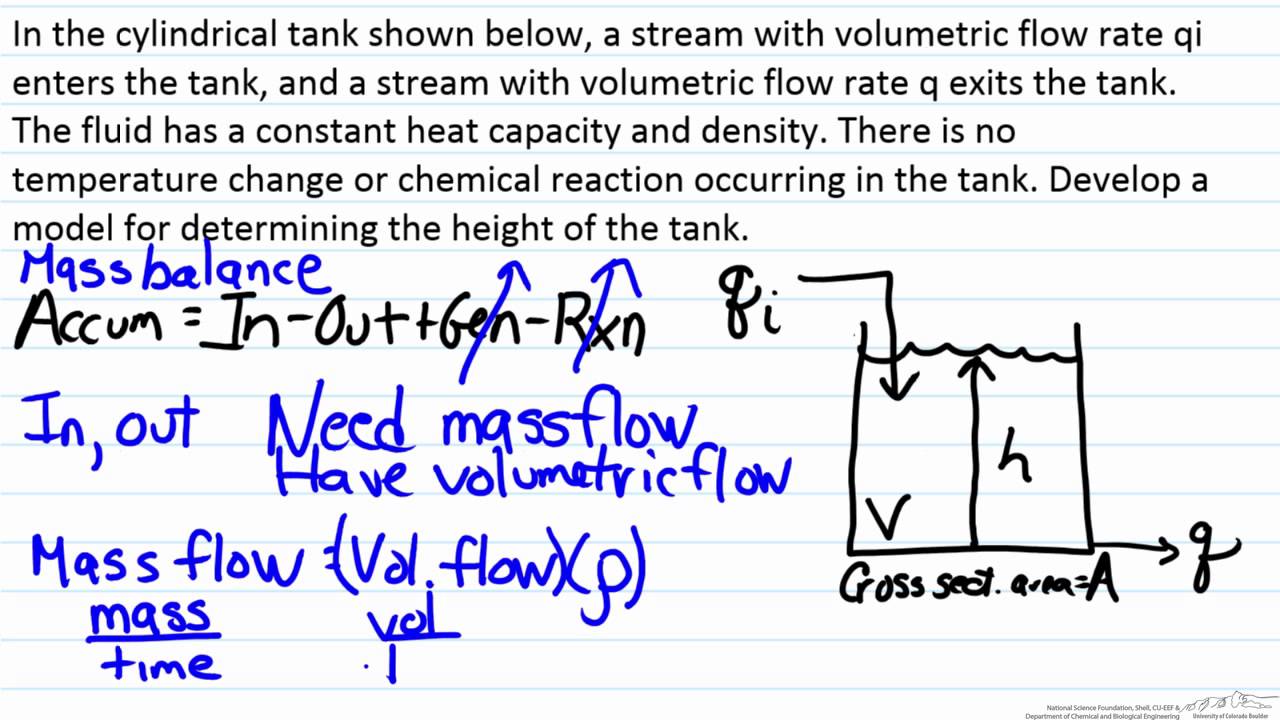 In the cylindrical tank shown below, a stream with volumetric flow rate qi
enters the tank, and a stream with volumetric flow rate q exits the tank.
The fluid has a constant heat capacity and density. There is no
temperature change or chemical reaction occurring in the tank. Develop a
model for determining the height of the tank.
Mass balance
Accum = In - Out + Gen - Rxn
qi
In, out Need mass flow
Have volumetric flow
h
V
Mass flow = (Vol. flow)(ρ)
q
Cross sect. area = A
mass
time
vol
National Science Foundation, Shell, CU-EEF &
Department of Chemical and Biological Engineering
University of Colorado Boulder